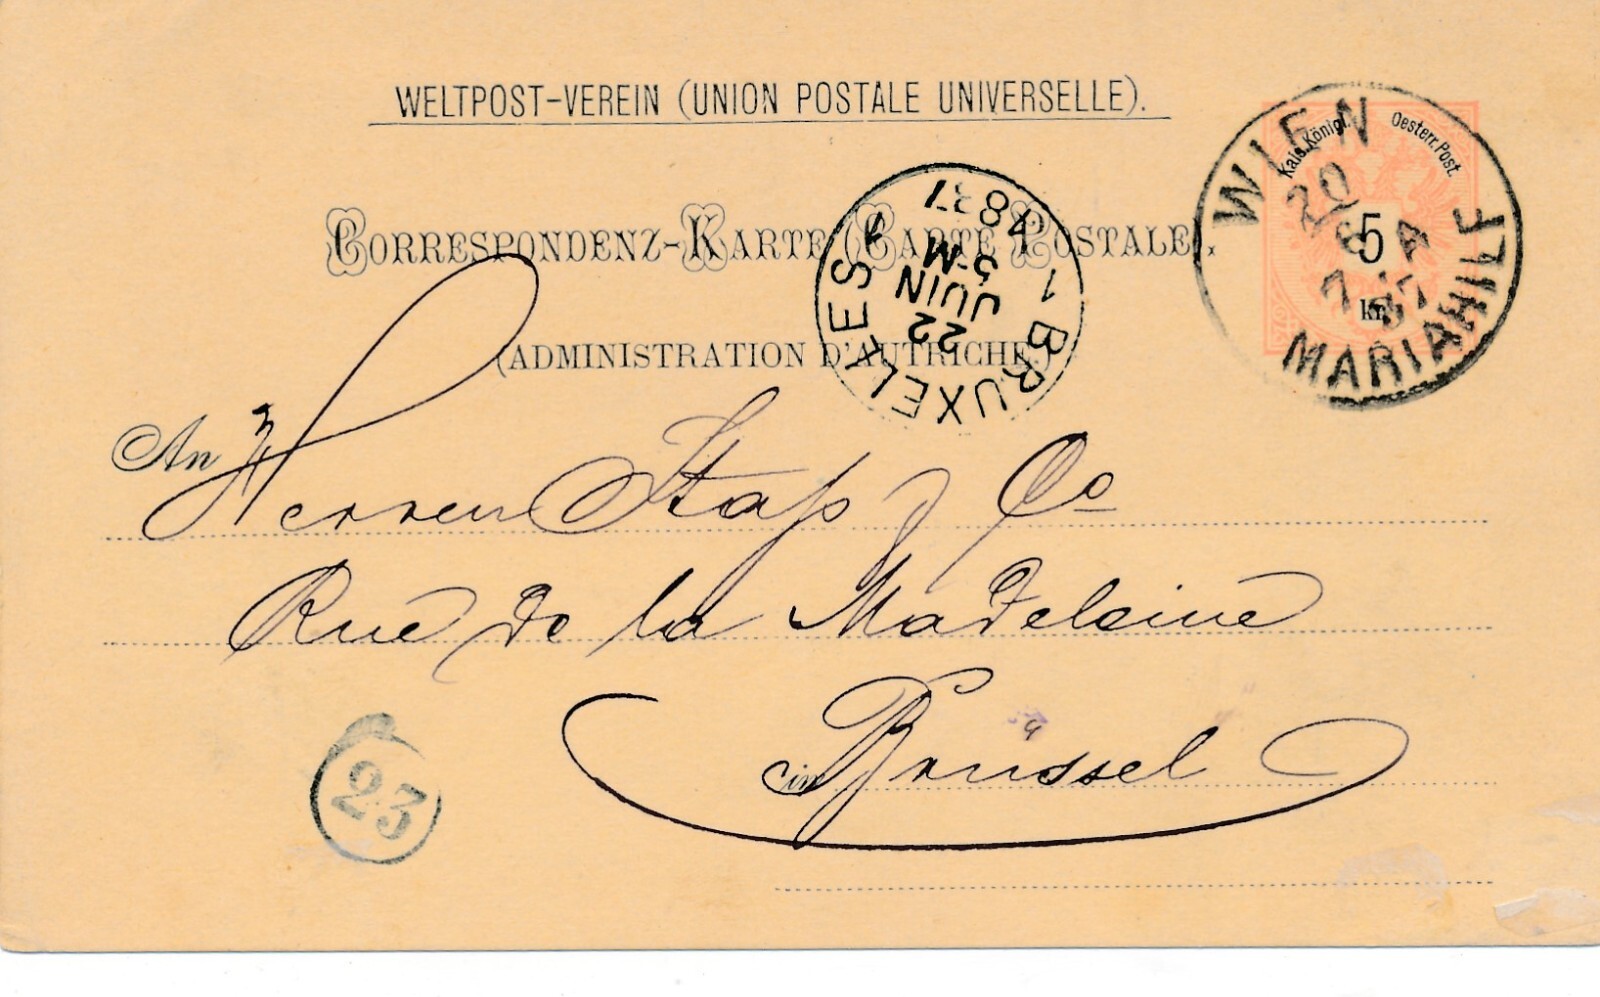 WELTPOST-VEREIN (UNION POSTALE UNIVERSELLE).
CORRESPONDENZ-KARTE (CARTE POSTALE).
(ADMINISTRATION D'AUTRICHE.)
Kais. Königl. Oesterr. Post.
5
kr.
WIEN
20
6
7 A
87
MARIAHILF
1 BRUXELLES 1
22
JUIN
5-M
1887
An Herren Stap & Co
Rue de la Madeleine
in Brüssel
23